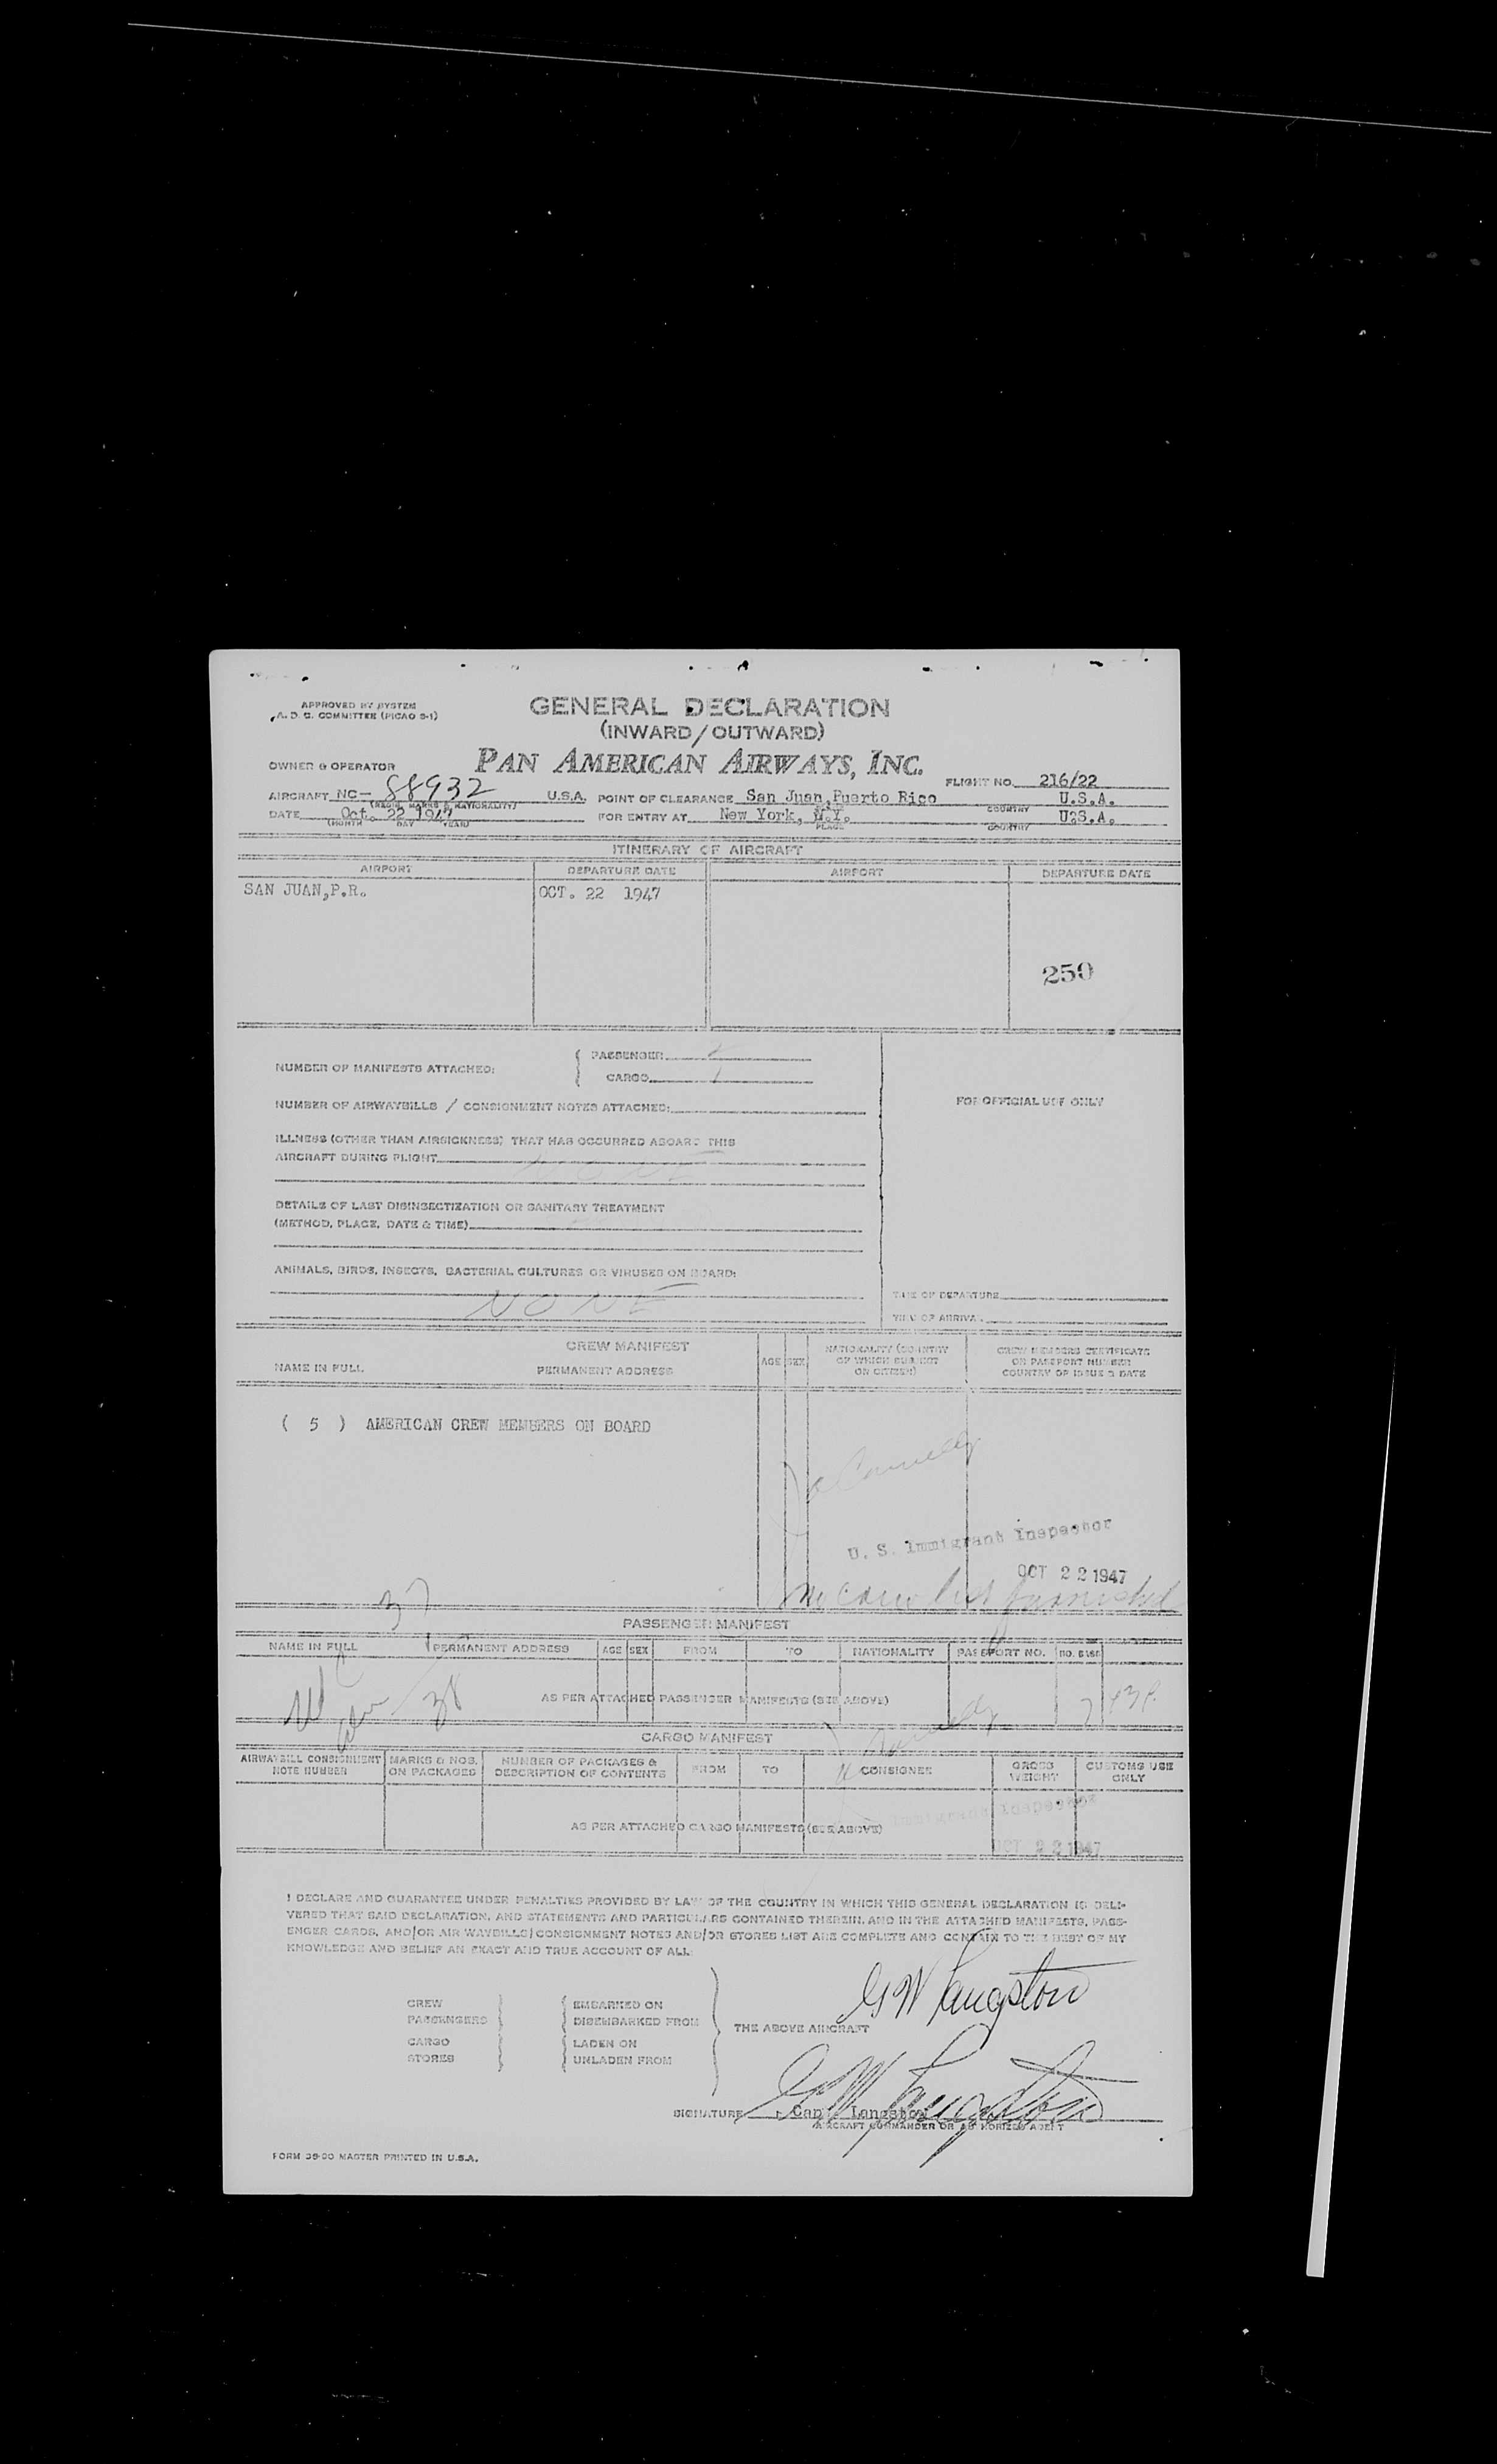 APPROVED BY SYSTEM
A. D. C. COMMITTEE (PICAO 5-1)
GENERAL DECLARATION
(INWARD/OUTWARD)
OWNER & OPERATOR PAN AMERICAN AIRWAYS, INC.
FLIGHT NO. 216/22
AIRCRAFT NC- 88932 U.S.A. POINT OF CLEARANCE San Juan, Puerto Rico U.S.A.
(REGIS. MARKS & NATIONALITY) PLACE COUNTRY
DATE Oct. 22 1947 FOR ENTRY AT New York, N.Y. U.S.A.
(MONTH DAY YEAR) PLACE COUNTRY
ITINERARY OF AIRCRAFT
AIRPORT DEPARTURE DATE AIRPORT DEPARTURE DATE
SAN JUAN,P.R. OCT. 22 1947
250
NUMBER OF MANIFESTS ATTACHED: { PASSENGER
CARGO 1
NUMBER OF AIRWAYBILLS / CONSIGNMENT NOTES ATTACHED:
FOR OFFICIAL USE ONLY
ILLNESS (OTHER THAN AIRSICKNESS) THAT HAS OCCURRED ABOARD THIS
AIRCRAFT DURING FLIGHT NONE
DETAILS OF LAST DISINSECTIZATION OR SANITARY TREATMENT
(METHOD, PLACE, DATE & TIME)
ANIMALS, BIRDS, INSECTS, BACTERIAL CULTURES OR VIRUSES ON BOARD:
NONE
TIME OF DEPARTURE
TIME OF ARRIVAL
CREW MANIFEST
NAME IN FULL PERMANENT ADDRESS AGE SEX NATIONALITY (COUNTRY OF WHICH SUBJECT OR CITIZEN) CREW MEMBERS CERTIFICATE OR PASSPORT NUMBER COUNTRY OF ISSUE & DATE
( 5 ) AMERICAN CREW MEMBERS ON BOARD
U. S. Immigrant Inspector
OCT 22 1947
37 No crew list furnished
PASSENGER MANIFEST
NAME IN FULL PERMANENT ADDRESS AGE SEX FROM TO NATIONALITY PASSPORT NO. NO. BAGS
38 AS PER ATTACHED PASSENGER MANIFESTS (SEE ABOVE)
CARGO MANIFEST
AIRWAYBILL CONSIGNMENT NOTE NUMBER MARKS & NOS. ON PACKAGES NUMBER OF PACKAGES & DESCRIPTION OF CONTENTS FROM TO CONSIGNEE GROSS WEIGHT CUSTOMS USE ONLY
Immigrant Inspector
AS PER ATTACHED CARGO MANIFESTS (SEE ABOVE)
OCT 22 1947
I DECLARE AND GUARANTEE UNDER PENALTIES PROVIDED BY LAW OF THE COUNTRY IN WHICH THIS GENERAL DECLARATION IS DELI-
VERED THAT SAID DECLARATION, AND STATEMENTS AND PARTICULARS CONTAINED THEREIN, AND IN THE ATTACHED MANIFESTS, PASS-
ENGER CARDS, AND/OR AIR WAYBILLS/CONSIGNMENT NOTES AND/OR STORES LIST ARE COMPLETE AND CONTAIN TO THE BEST OF MY
KNOWLEDGE AND BELIEF AN EXACT AND TRUE ACCOUNT OF ALL:
G W Langston
CREW EMBARKED ON
PASSENGERS DISEMBARKED FROM
THE ABOVE AIRCRAFT
CARGO LADEN ON
STORES UNLADEN FROM
G W Langston
SIGNATURE Capt. Langston
AIRCRAFT COMMANDER OR AUTHORIZED AGENT
FORM 39-90 MASTER PRINTED IN U.S.A.